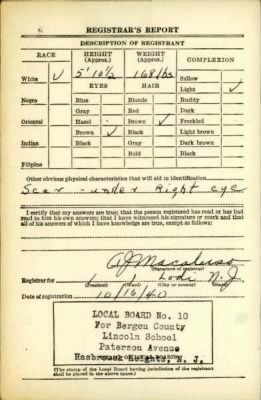 6 REGISTRAR'S REPORT
DESCRIPTION OF REGISTRANT
RACE HEIGHT (Approx.) WEIGHT (Approx.) COMPLEXION
White ✓ 5' 10 1/2 168 lbs Sallow
EYES HAIR Light ✓
Negro Blue Blonde Ruddy
Gray Red Dark
Oriental Hazel Brown ✓ Freckled
Brown ✓ Black Light brown
Indian Black Gray Dark brown
Bald Black
Filipino
Other obvious physical characteristics that will aid in identification
Scar - under Right eye
I certify that my answers are true; that the person registered has read or has had
read to him his own answers; that I have witnessed his signature or mark and that
all of his answers of which I have knowledge are true, except as follows:
(Signature of registrar)
Registrar for Lodi N.J.
(Precinct) (Ward) (City or county) (State)
Date of registration 10/16/40
LOCAL BOARD No. 10
For Bergen County
Lincoln School
Paterson Avenue
Hasbrouck Heights, N. J.
(The stamp of the Local Board having jurisdiction of the registrant
shall be placed in the above space.)